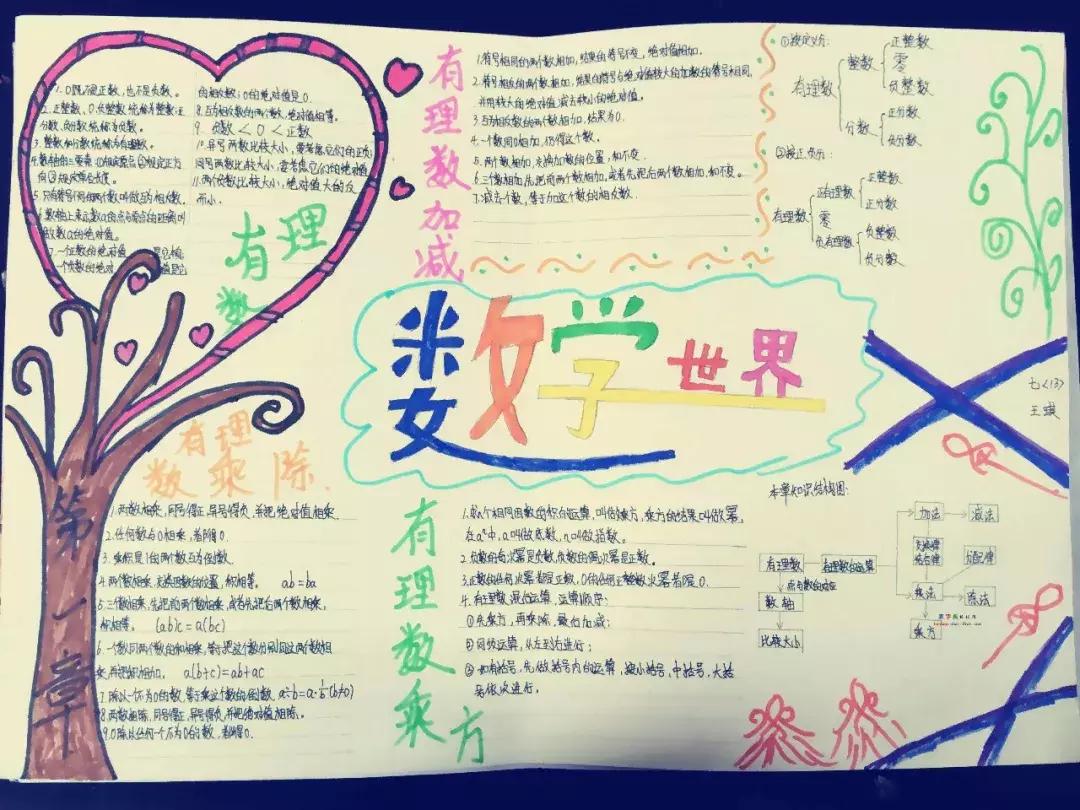 1. 0既不是正数,也不是负数。
2. 正整数、0、负整数统称为整数;正
分数、负分数统称为负数。
3. 整数和分数统称为有理数。
的相反数;0的绝对值是0.
8. 互为相反数的两个数,绝对值相等。
9. 负数<0<正数
10. 异号两数比较大小,要考虑它们的正负;
同号两数比较大小,要考虑它们的绝对值
11. 两个负数比较大小,绝对值大的反
而小.
5. 只有符号不同的两个数叫做互为相反数.
6. 数轴上表示数a的点与原点的距离叫
做数a的绝对值。
有理数
有理数加减
1. 符号相同的两个数相加,结果的符号不变,绝对值相加.
2. 符号相反的两个数相加,结果的符号与绝对值较大的加数的符号相同,
并用较大的绝对值减去较小的绝对值.
3. 互为相反数的两个数相加,结果为0.
4. 一个数同0相加,仍得这个数.
5. 两个数相加,交换加数的位置,和不变.
6. 三个数相加,先把前两个数相加,或者先把后两个数相加,和不变.
7. 减去个数,等于加这个数的相反数.
①按定义分:
有理数
整数
正整数
零
负整数
分数
正分数
负分数
②按正负分:
有理数
正有理数
正整数
正分数
零
负有理数
负整数
负分数
数学世界
七(13)
王
有理数乘除
1. 两数相乘,同号得正,异号得负,并把绝对值相乘.
2. 任何数与0相乘,都得0.
3. 乘积是1的两个数互为倒数.
4. 两个数相乘,交换因数的位置,积相等. ab=ba
5. 三个数相乘,先把前两个数相乘,或者先把后两个数相乘,
积相等. (ab)c=a(bc)
6. 一个数同两个数的和相乘,等于把这个数分别同这两个数相
乘,再把积相加. a(b+c)=ab+ac
7. 除以一个不为0的数,等于乘这个数的倒数. a÷b=a·1/b(b≠0)
8. 两数相除,同号得正,异号得负,并把绝对值相除.
9. 0除以任何一个不为0的数,都得0.
第一章
有理数乘方
1. 求n个相同因数的积的运算,叫做乘方,乘方的结果叫做幂.
在aⁿ中,a叫做底数,n叫做指数.
2. 负数的奇次幂是负数,负数的偶次幂是正数.
3. 正数的任何次幂都是正数,0的任何正整数次幂都得0.
4. 有理数混合运算,运算顺序:
①先乘方,再乘除,最后加减;
②同级运算,从左到右进行;
③如有括号,先做括号内的运算,按小括号,中括号,大括
号依次进行.
本章知识结构图:
有理数
点与数的对应
数轴
比较大小
有理数的运算
加法
减法
交换律
结合律
分配律
乘法
除法
乘方